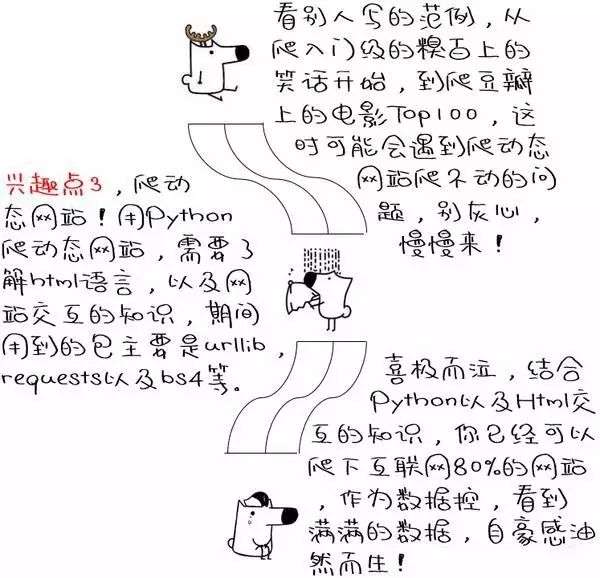 看别人写的范例，从
爬入门级的糗百上的
笑话开始，到爬豆瓣
上的电影Top100，这
时可能会遇到爬动态
网站爬不动的问
题，别灰心，
慢慢来！
兴趣点3，爬动
态网站！用Python
爬动态网站，需要了
解html语言，以及网
站交互的知识，期间
用到的包主要是urllib，
requests以及bs4等。
喜极而泣，结合
Python以及Html交
互的知识，你已经可以
爬下互联网80%的网站
，作为数据控，看到
满满的数据，自豪感油
然而生！